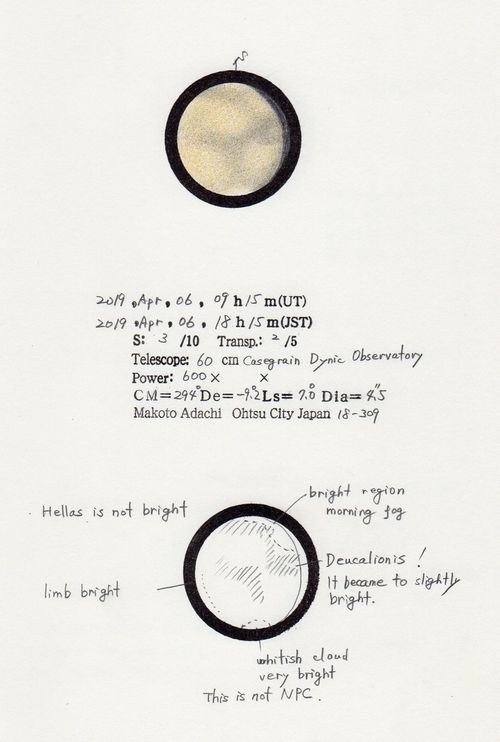 S
2019, Apr, 06, 09 h 15 m(UT)
2019, Apr, 06, 18 h 15 m(JST)
S: 3 /10 Transp.: 2 /5
Telescope: 60 cm Casegrain Dynic Observatory
Power: 600 × ×
CM=294° De=-9.°2 Ls= 7.°0 Dia= 4.″5
Makoto Adachi Ohtsu City Japan 18-309
bright region
morning fog
Hellas is not bright
Deucalionis !
It became to slightly
bright.
limb bright
whitish cloud
very bright
This is not NPC.